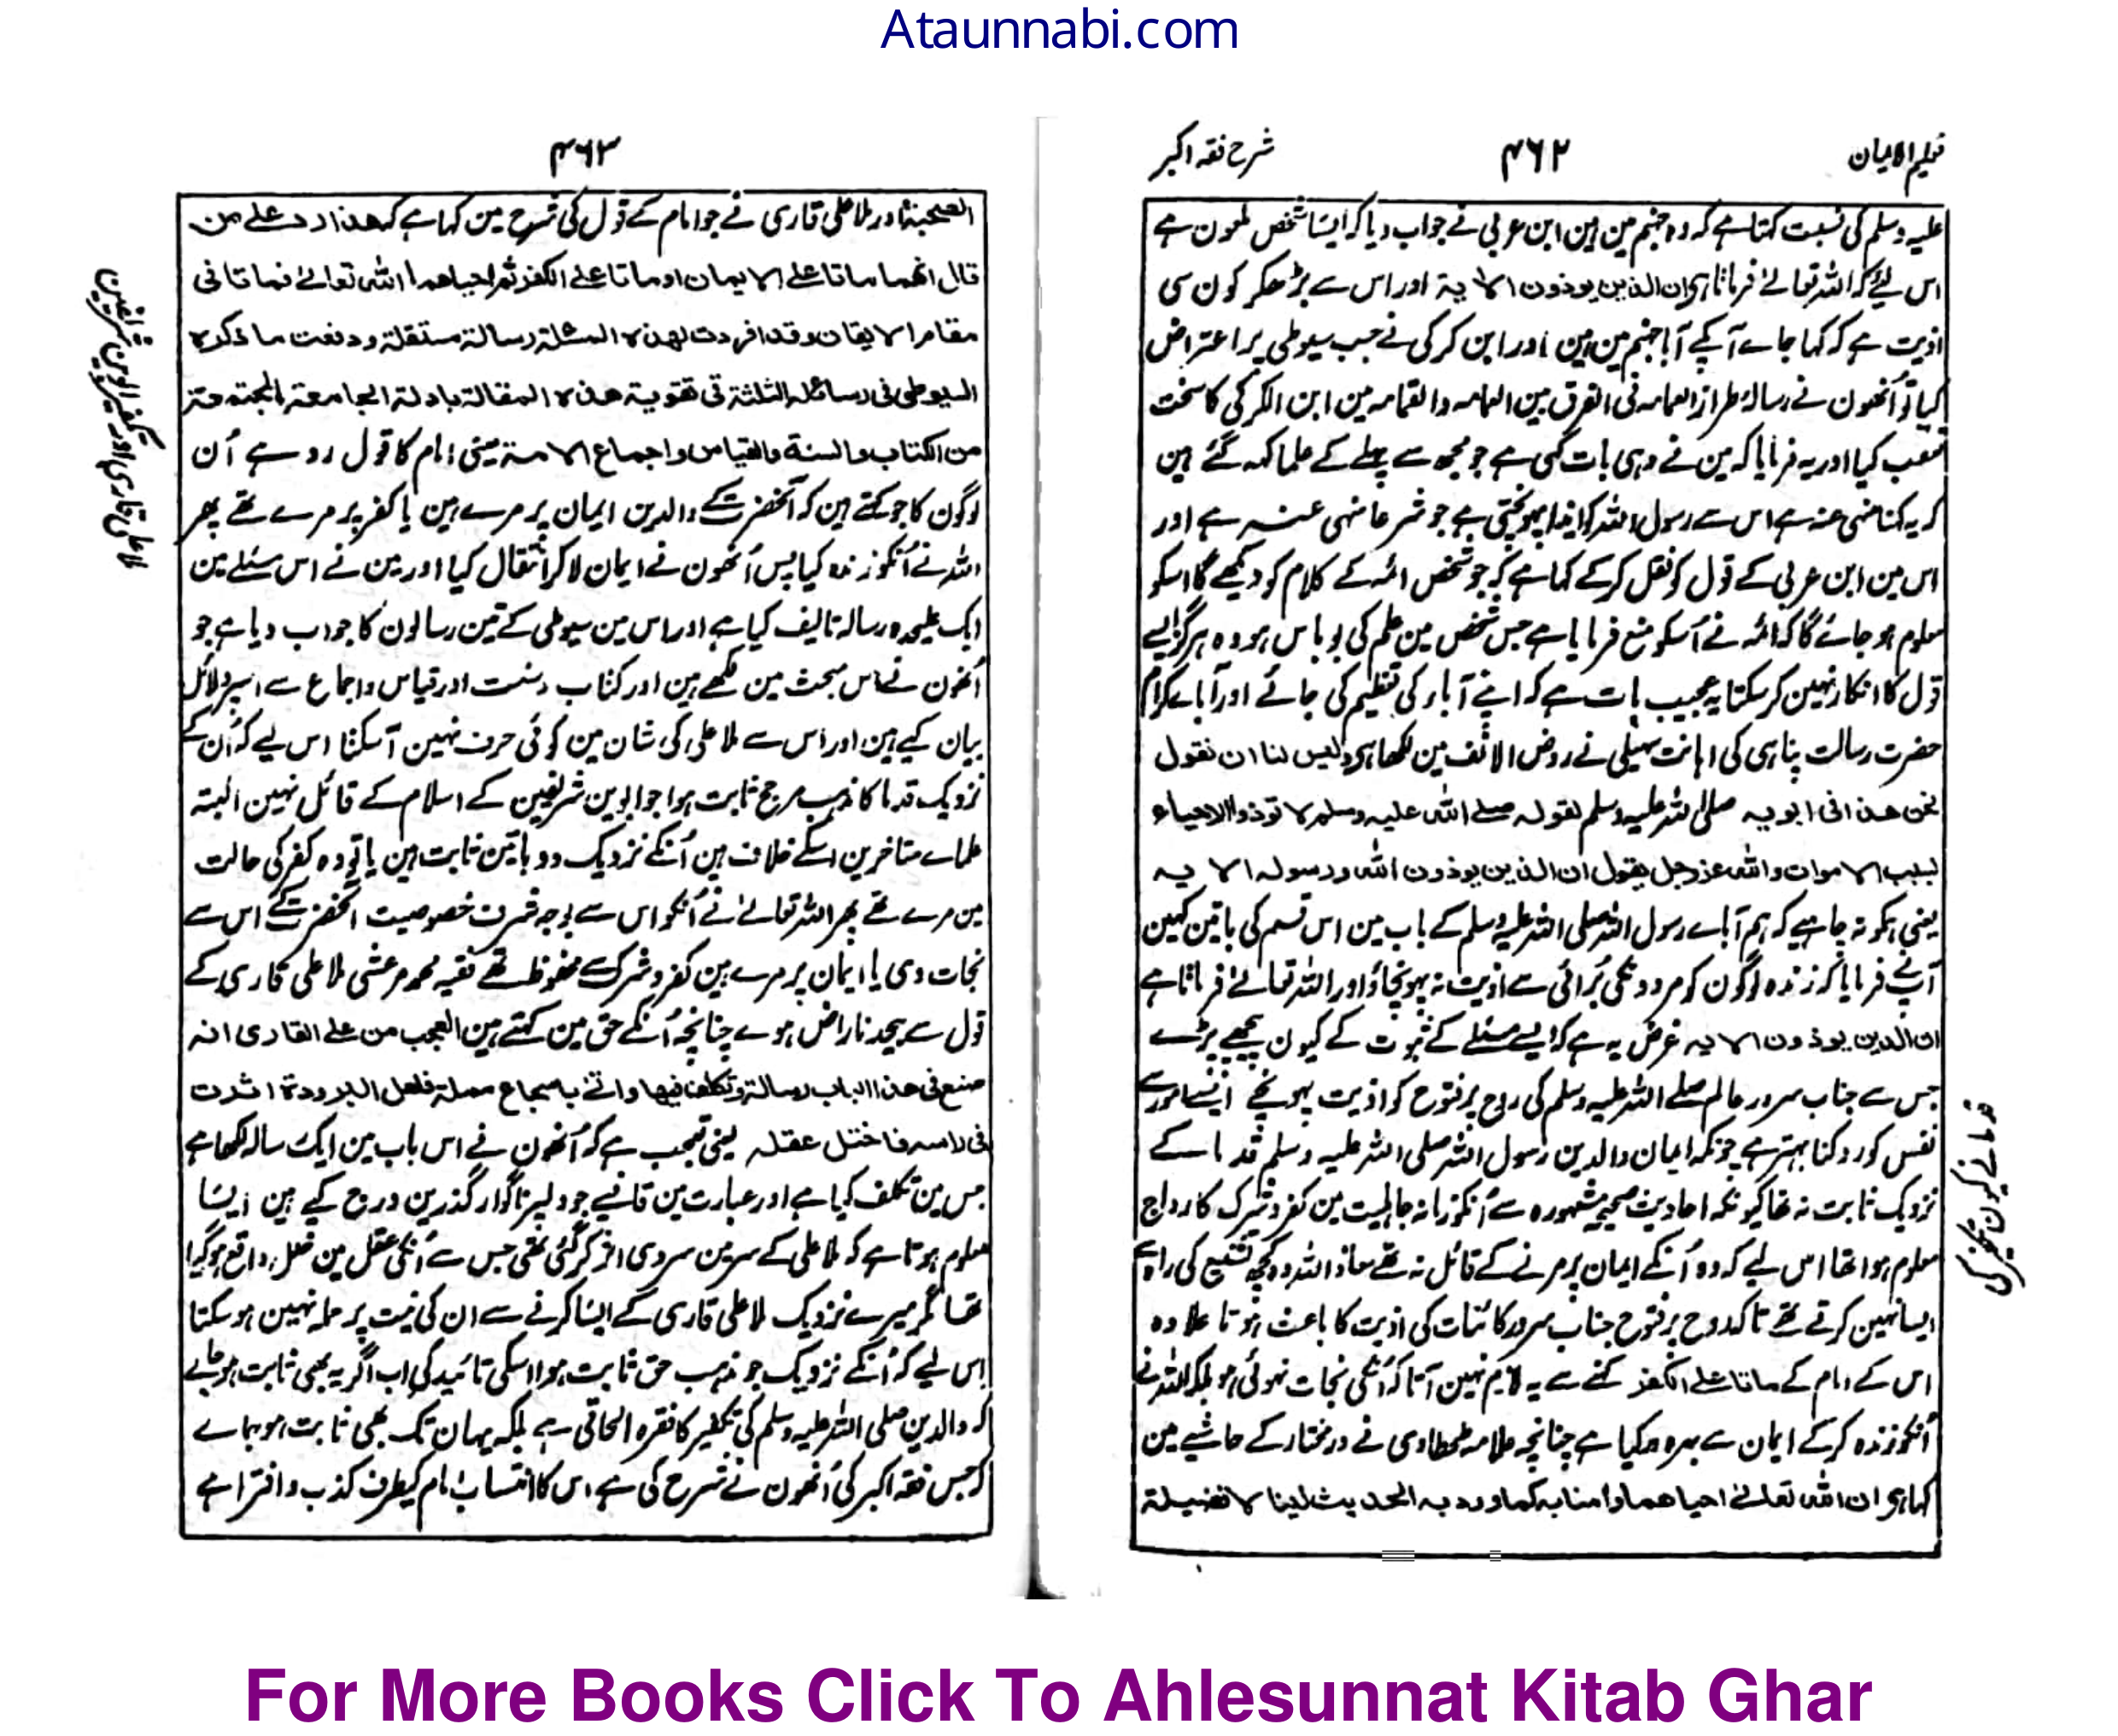 Ataunnabi.com
تعلیم الایمان
۴۶۲
شرح فقہ اکبر
علیہ وسلم کی نسبت کہتا ہے کہ وہ جہنم مین ہین ابن عربی نے جواب دیا کہ ایسا شخص ملعون ہے
اس لیے کہ اللہ تعالے فرماتا ہی ان الذین یوذون الایۃ اور اس سے بڑھکر کون سی
اذیت ہے کہ کہا جاے آپکے آبا جہنم مین ہین اور ابن کرکی نے جب سیوطی پر اعتراض
کیا تو اُنھون نے رسالۂ طراز العمامہ فی الفرق بین العمامہ والقمامہ مین ابن الکرکی کا سخت
تعجب کیا اور یہ فرمایا کہ مین نے وہی بات کہی ہے جو مجھ سے پہلے کے علما کہہ گئے ہین
کہ یہ کہنا منہی عنہ ہے اس سے رسول اللہ کو ایذا پہونچتی ہے جو شرعا منہی عنہ ہے اور
اس مین ابن عربی کے قول کو نقل کرکے کہا ہے کہ جو شخص ائمہ کے کلام کو دیکھے گا اسکو
معلوم ہو جائے گا کہ ائمہ نے اُسکو منع فرمایا ہے جس شخص مین علم کی بو باس ہو وہ ہرگز ایسے
قول کا انکار نہین کر سکتا یہ عجیب بات ہے کہ اپنے آباء کی تعظیم کی جائے اور آباے کرام
حضرت رسالت پناہی کی اہانت سہیلی نے روض الانف مین لکھا ہی ولیس لنا ان نقول
نحن ھذا فی ابویہ صلی اللہ علیہ وسلم لقولہ صلے اللہ علیہ وسلم لا توذوا الاحیاء
بسبب الاموات واللہ عزوجل یقول ان الذین یوذون اللہ ورسولہ الایہ
یعنی ہمکو نہ چاہیے کہ ہم آباے رسول اللہ صلی اللہ علیہ وسلم کے باب مین اس قسم کی باتین کہین
آپنے فرمایا کہ زندہ لوگون کو مردونکی بُرائی سے اذیت نہ پہونچاؤ اور اللہ تعالے فرماتا ہے
ان الذین یوذون الایہ غرض یہ ہے کہ ایسے مسئلے کے ثبوت کے کیون پیچھے پڑے
جس سے جناب سرور عالم صلے اللہ علیہ وسلم کی روح پرفتوح کو اذیت پہونچے ایسے امور سے
نفس کو روکنا بہتر ہے چونکہ ایمان والدین رسول اللہ صلی اللہ علیہ وسلم قدما کے
نزدیک ثابت نہ تھا کیونکہ احادیث صحیحہ مشہورہ سے اُنکو زمانہ جاہلیت مین کفر و شرک کا رواج
معلوم ہوا تھا اس لیے کہ وہ اُنکے ایمان پر مرنے کے قائل نہ تھے معاذ اللہ وہ کچھ تشنیع کی راہ سے
ایسا نہین کرتے تھے تاکہ روح پرفتوح جناب سرور کائنات کی اذیت کا باعث ہوتا علاوہ
اس کے امام کے ماتا علے الکفر کہنے سے یہ لازم نہین آتا کہ اُنکی نجات نہوئی ہو بلکہ اللہ نے
اُنکو زندہ کرکے ایمان سے بہرہ ور کیا ہے چنانچہ علامہ طحطاوی نے در مختار کے حاشیے مین
کہا ہی ان اللہ تعالے احیاھما وامنا بہ کما ورد بہ الحدیث لینالا فضیلۃ
۴۶۳
الصحبۃ اور ملا علی قاری نے جو امام کے قول کی شرح مین کہا ہے کہ ھذا رد علے من
قال انھما ماتا علے الایمان او ماتا علے الکفر ثم احیاھما اللہ تعالے فماتا فی
مقام الایقان وقد افردت لھذہ المسئلۃ رسالۃ مستقلۃ ودفعت ما ذکرہ
السیوطی فی رسائلہ الثلثۃ فی تقویۃ ھذہ المقالۃ بادلۃ الجامعۃ المجتمعۃ
من الکتاب والسنۃ والقیاس واجماع الامۃ یعنی امام کا قول رد ہے اُن
لوگون کا جو کہتے ہین کہ آنحضرتؐ کے والدین ایمان پر مرے ہین یا کفر پر مرے تھے پھر
اللہ نے اُنکو زندہ کیا پس اُنھون نے ایمان لاکر انتقال کیا اور مین نے اس مسئلے مین
ایک علیحدہ رسالہ تالیف کیا ہے اور اس مین سیوطی کے تین رسالون کا جواب دیا ہے جو
اُنھون نے اس مبحث مین لکھے ہین اور کتاب و سنت اور قیاس و اجماع سے اسپر دلائل
بیان کیے ہین اور اس سے ملا علی کی شان مین کوئی حرف نہین آسکتا اس لیے کہ اُن کے
نزدیک قدما کا مذہب مرجح ثابت ہوا جو ابوین شریفین کے اسلام کے قائل نہین البتہ
علماے متاخرین اسکے خلاف ہین اُنکے نزدیک دو باتین ثابت ہین یا تو وہ کفر کی حالت
مین مرے تھے پھر اللہ تعالے نے اُنکو اس سے بوجہ شرف خصوصیت آنحضرتؐ کے اس سے
نجات دی یا ایمان پر مرے ہین کفر و شرک سے محفوظ تھے فقیہ محمد مرعشی ملا علی قاری کے
قول سے بیحد ناراض ہوے چنانچہ اُنکے حق مین کہتے ہین العجب من علے القاری انہ
صنع فی ھذا الباب رسالۃ وتکلف فیھا واتی باسجاع مملۃ فلعل البرودۃ اثرت
فی راسہ فاختل عقلہ یعنی تعجب ہے کہ اُنھون نے اس باب مین ایک رسالہ لکھا ہے
جس مین تکلف کیا ہے اور عبارت مین قافیے جو دلپر ناگوار گذرین درج کیے ہین ایسا
معلوم ہوتا ہے کہ ملا علی کے سر مین سردی اثر کر گئی تھی جس سے اُنکی عقل مین خلل واقع ہوگیا
تھا مگر میرے نزدیک ملا علی قاری کے ایسا کرنے سے ان کی نیت پر حملہ نہین ہو سکتا
اس لیے کہ اُنکے نزدیک جو مذہب حق ثابت ہوا اسکی تائید کی اب اگر یہ بھی ثابت ہو جائے
کہ والدین صلی اللہ علیہ وسلم کی تکفیر کا فقرہ الحاقی ہے بلکہ یہان تک بھی ثابت ہو جاے
کہ جس فقہ اکبر کی اُنھون نے شرح کی ہے اس کا انتساب امام کیطرف کذب و افترا ہے
For More Books Click To Ahlesunnat Kitab Ghar